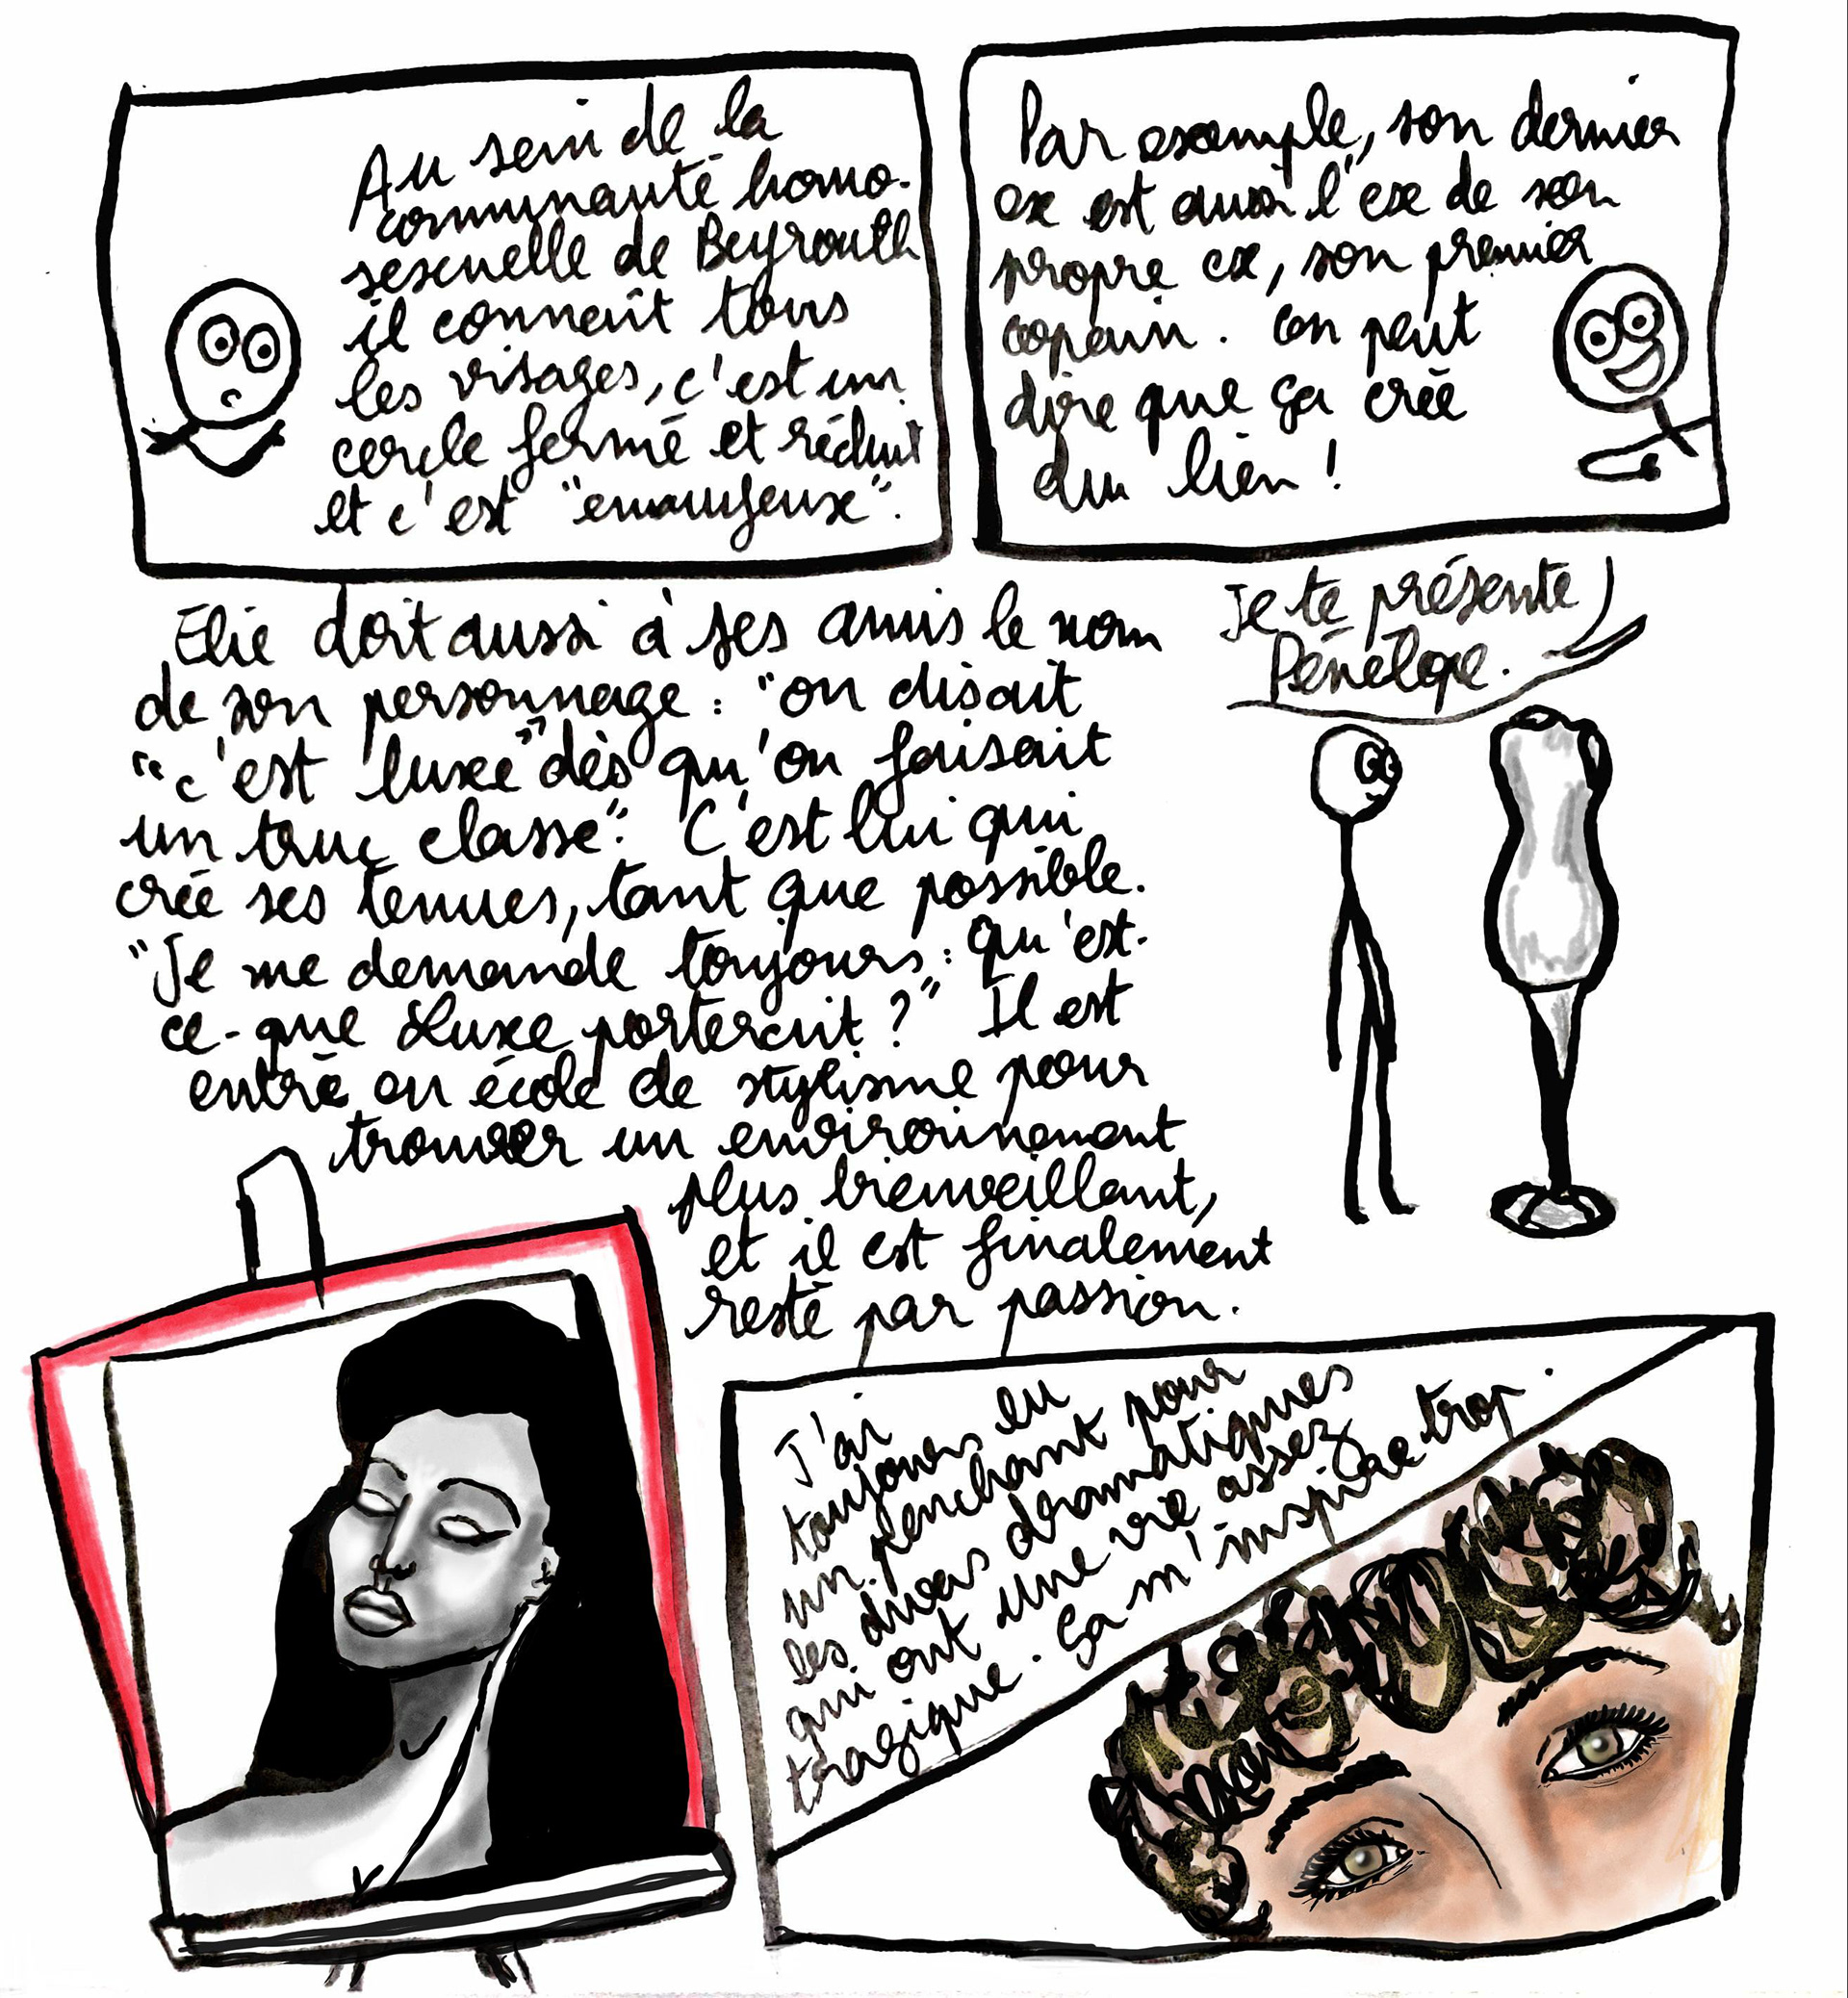 Au sein de la
communauté homo-
sexuelle de Beyrouth
il connaît tous
les visages, c'est un
cercle fermé et réduit
et c'est "ennuyeux".
Par exemple, son dernier
ex est aussi l'ex de son
propre ex, son premier
copain. On peut
dire que ça crée
du lien !
Elie doit aussi à ses amis le nom
de son personnage : "on disait
"c'est luxe" dès qu'on faisait
un truc classe". C'est lui qui
crée ses tenues, tant que possible.
"Je me demande toujours : qu'est-
ce-que Luxe porterait ?" Il est
entré en école de stylisme pour
trouver un environnement
plus bienveillant,
et il est finalement
resté par passion.
Je te présente
Pénélope.
J'ai
toujours eu
un penchant pour
les divas dramatiques
qui ont une vie assez
tragique. Ça m'inspire trop.